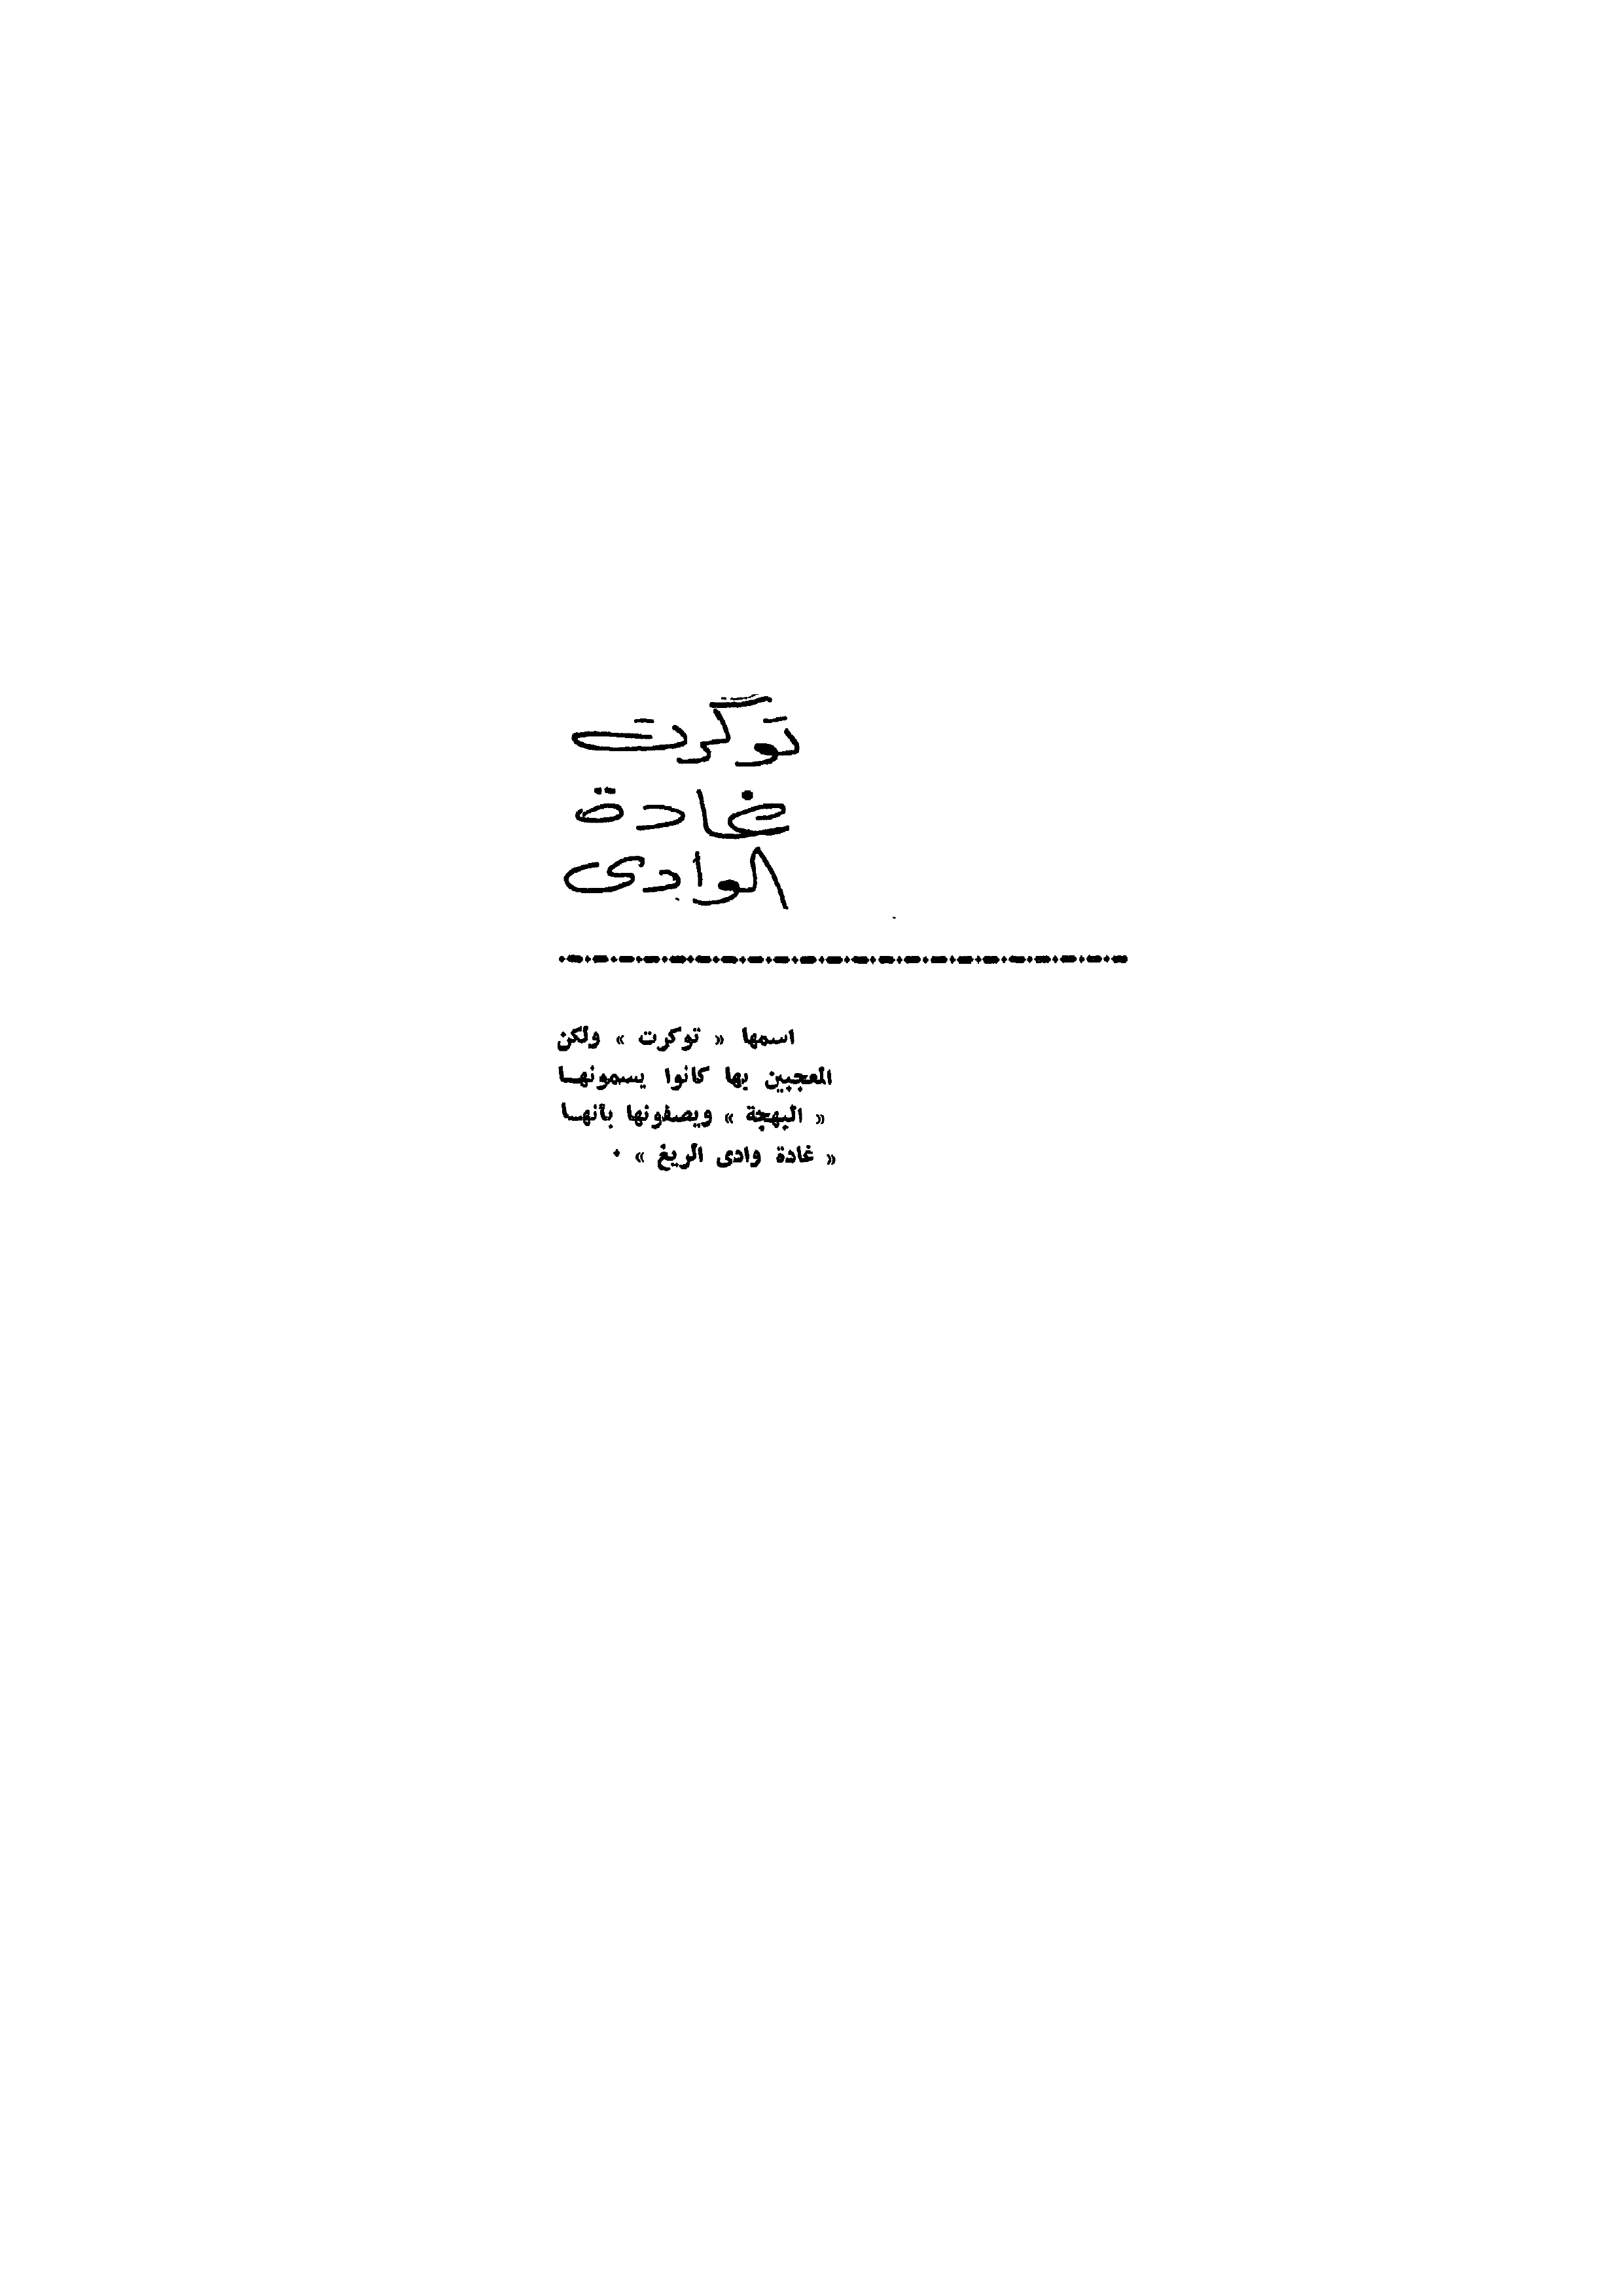 توكرت
غادة
الوادى
اسمها « توكرت » ولكن
المعجبين بها كانوا يسمونهــا
« البهجة » ويصفونها بأنهــا
« غادة وادى الريغ » ٠